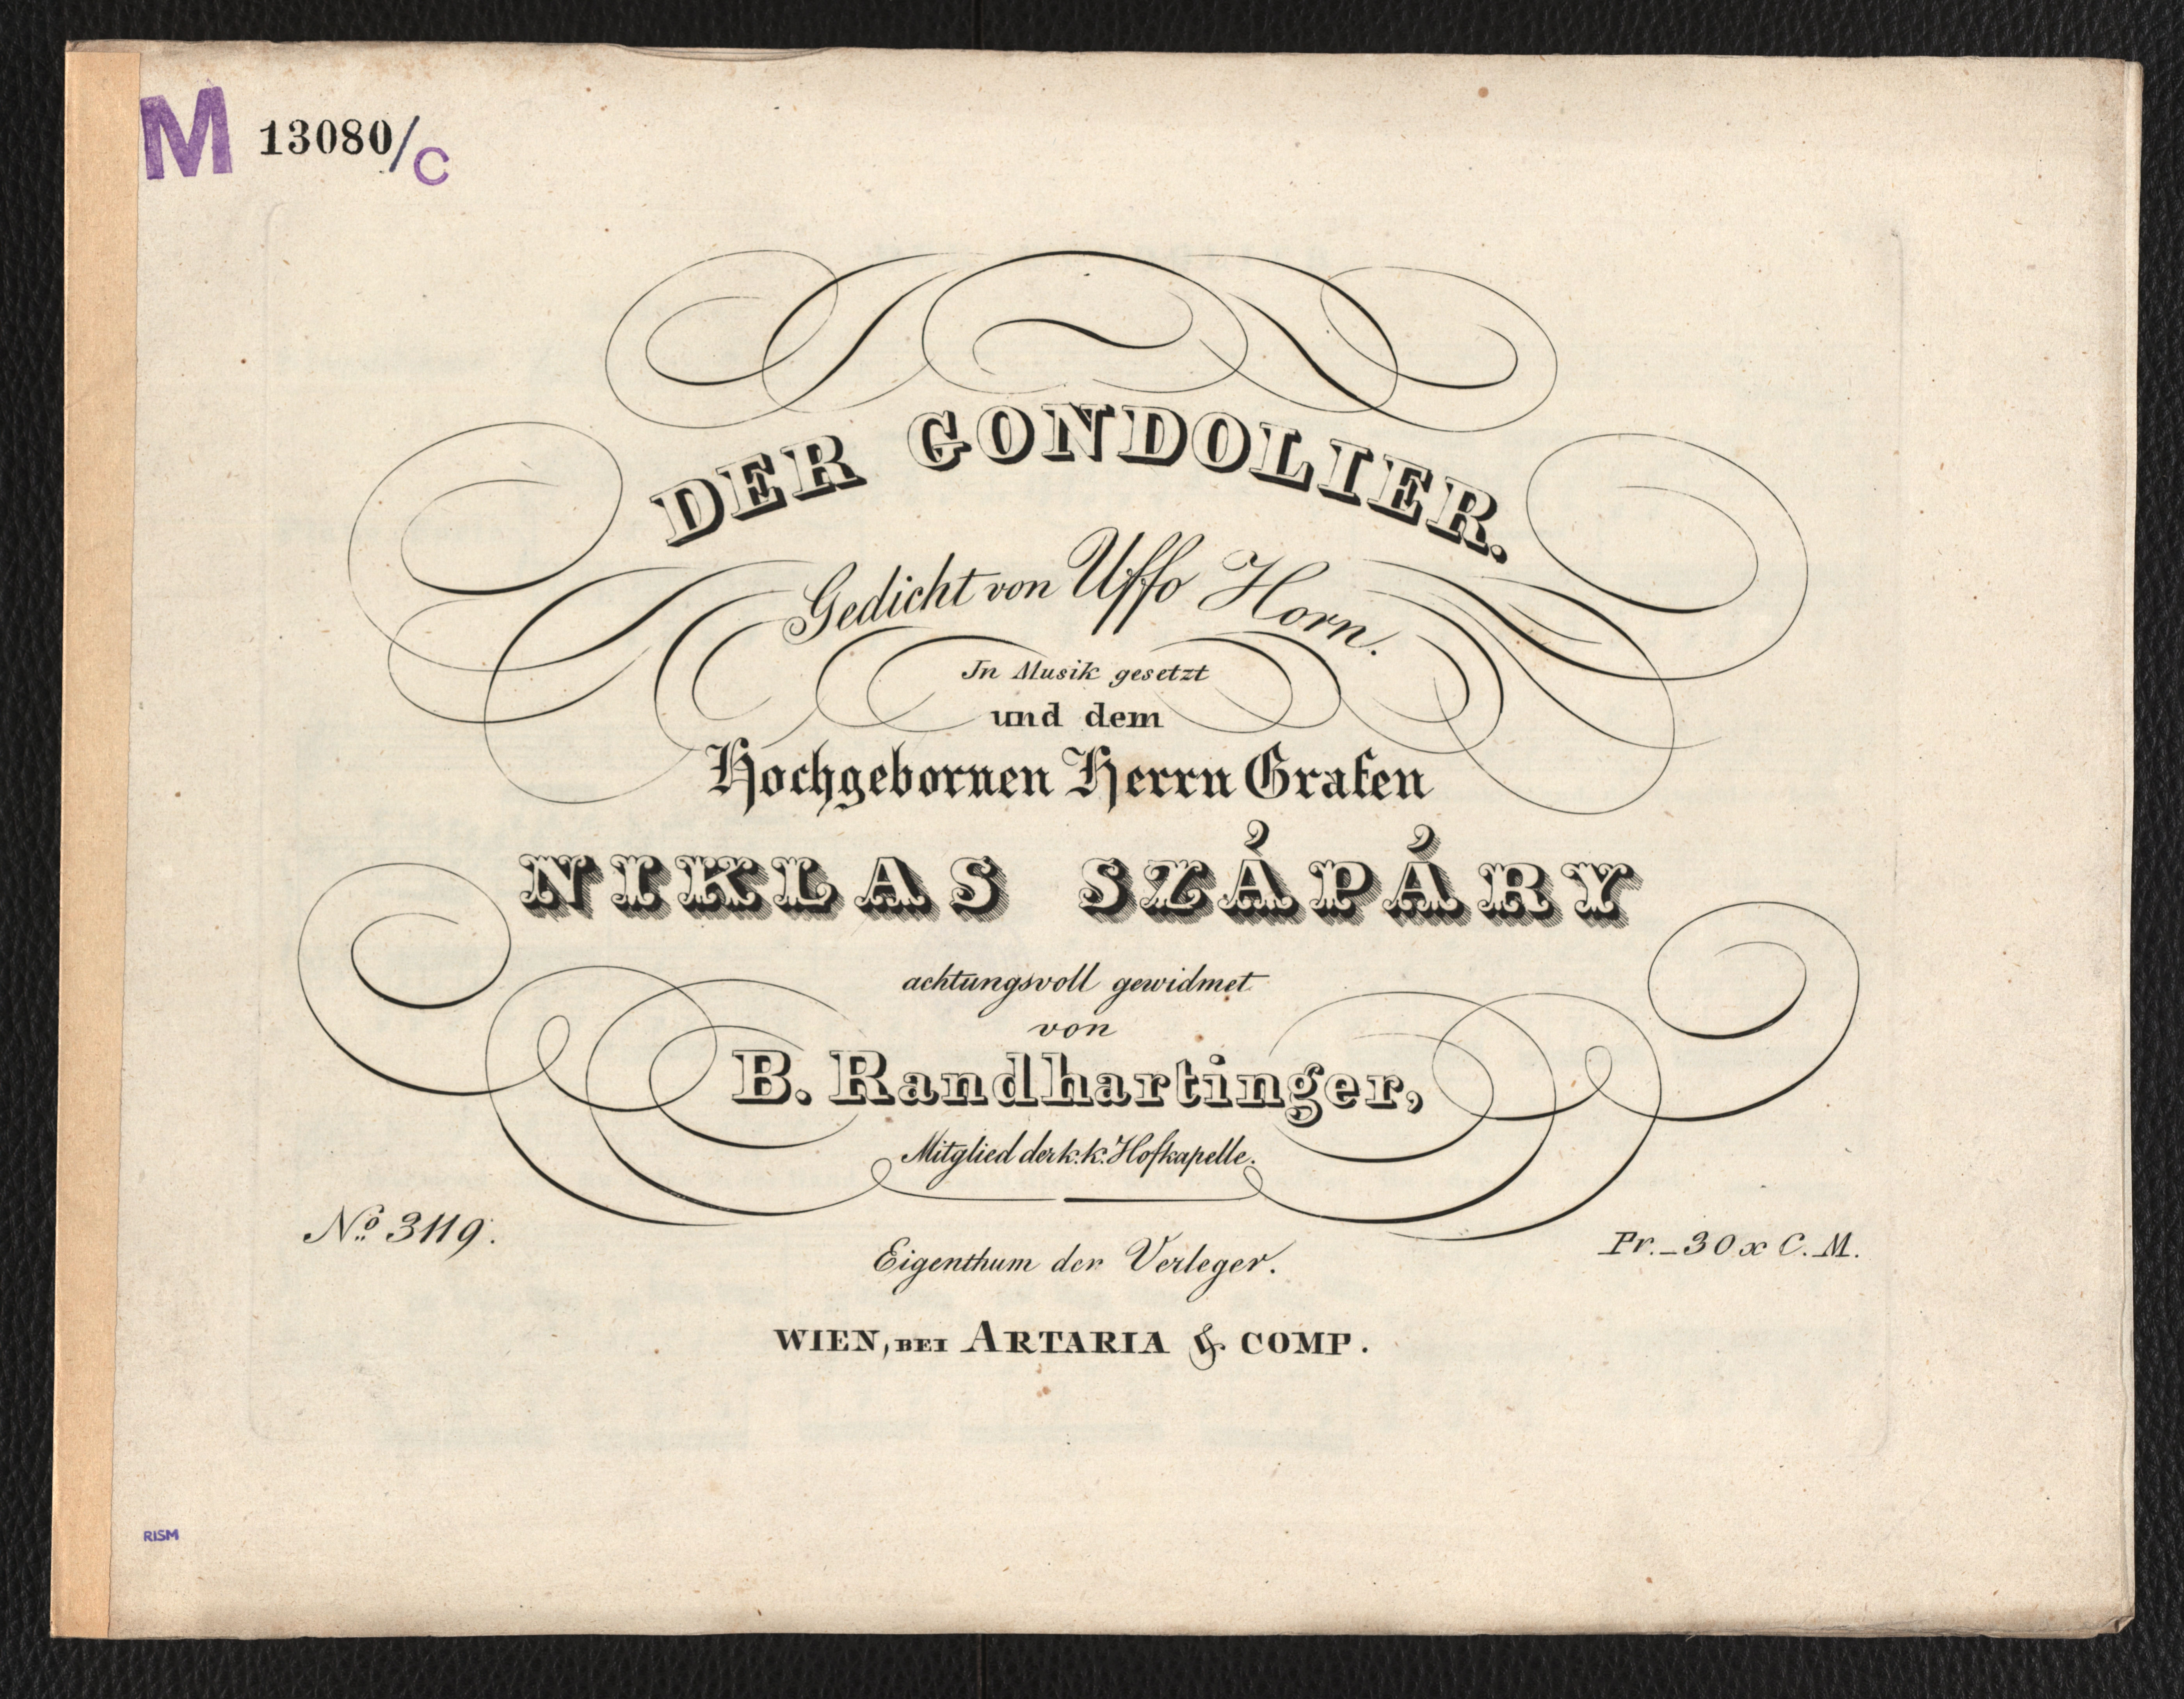 M 13080/C
DER GONDOLIER.
Gedicht von Uffo Horn.
In Musik gesetzt
und dem
Hochgebornen Herrn Grafen
NIKLAS SZÁPÁRY
achtungsvoll gewidmet
von
B. Randhartinger,
Mitglied der k.k. Hofkapelle.
No. 3119.
Pr. _ 30 x C. M.
Eigenthum der Verleger.
WIEN, BEI ARTARIA & COMP.
RISM